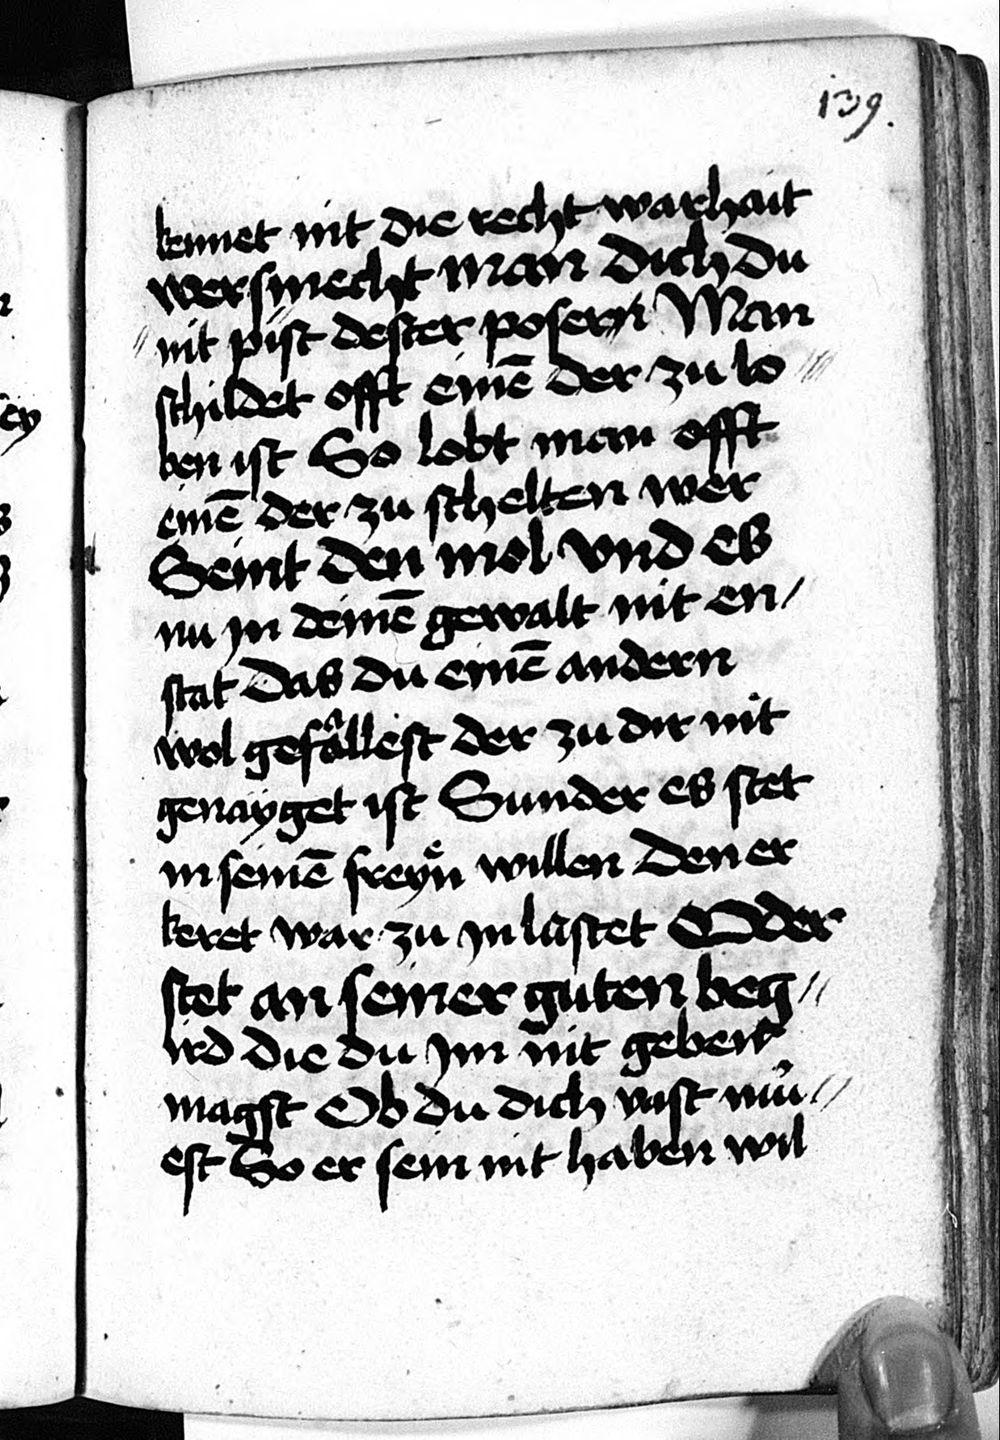 139.
kennet nit die recht warhait
wersmecht man dich du
nit pist dester poser Man
schildet offt einē der zu lo
ben ist So lobt man offt
einē der zu schelten wer
Seint den mol vnd es
nu yn deinē gewalt nit en/
stat Das du einē andern
wol gefallest der zu dir nit
genayget ist Sunder es stet
in seinē freyn willen Den er
keret war zu yn lustet Oder
stet an seiner guten beg//
ird die du ym nit geben
magst Ob du dich vast mu//
est So er sein nit haben wil